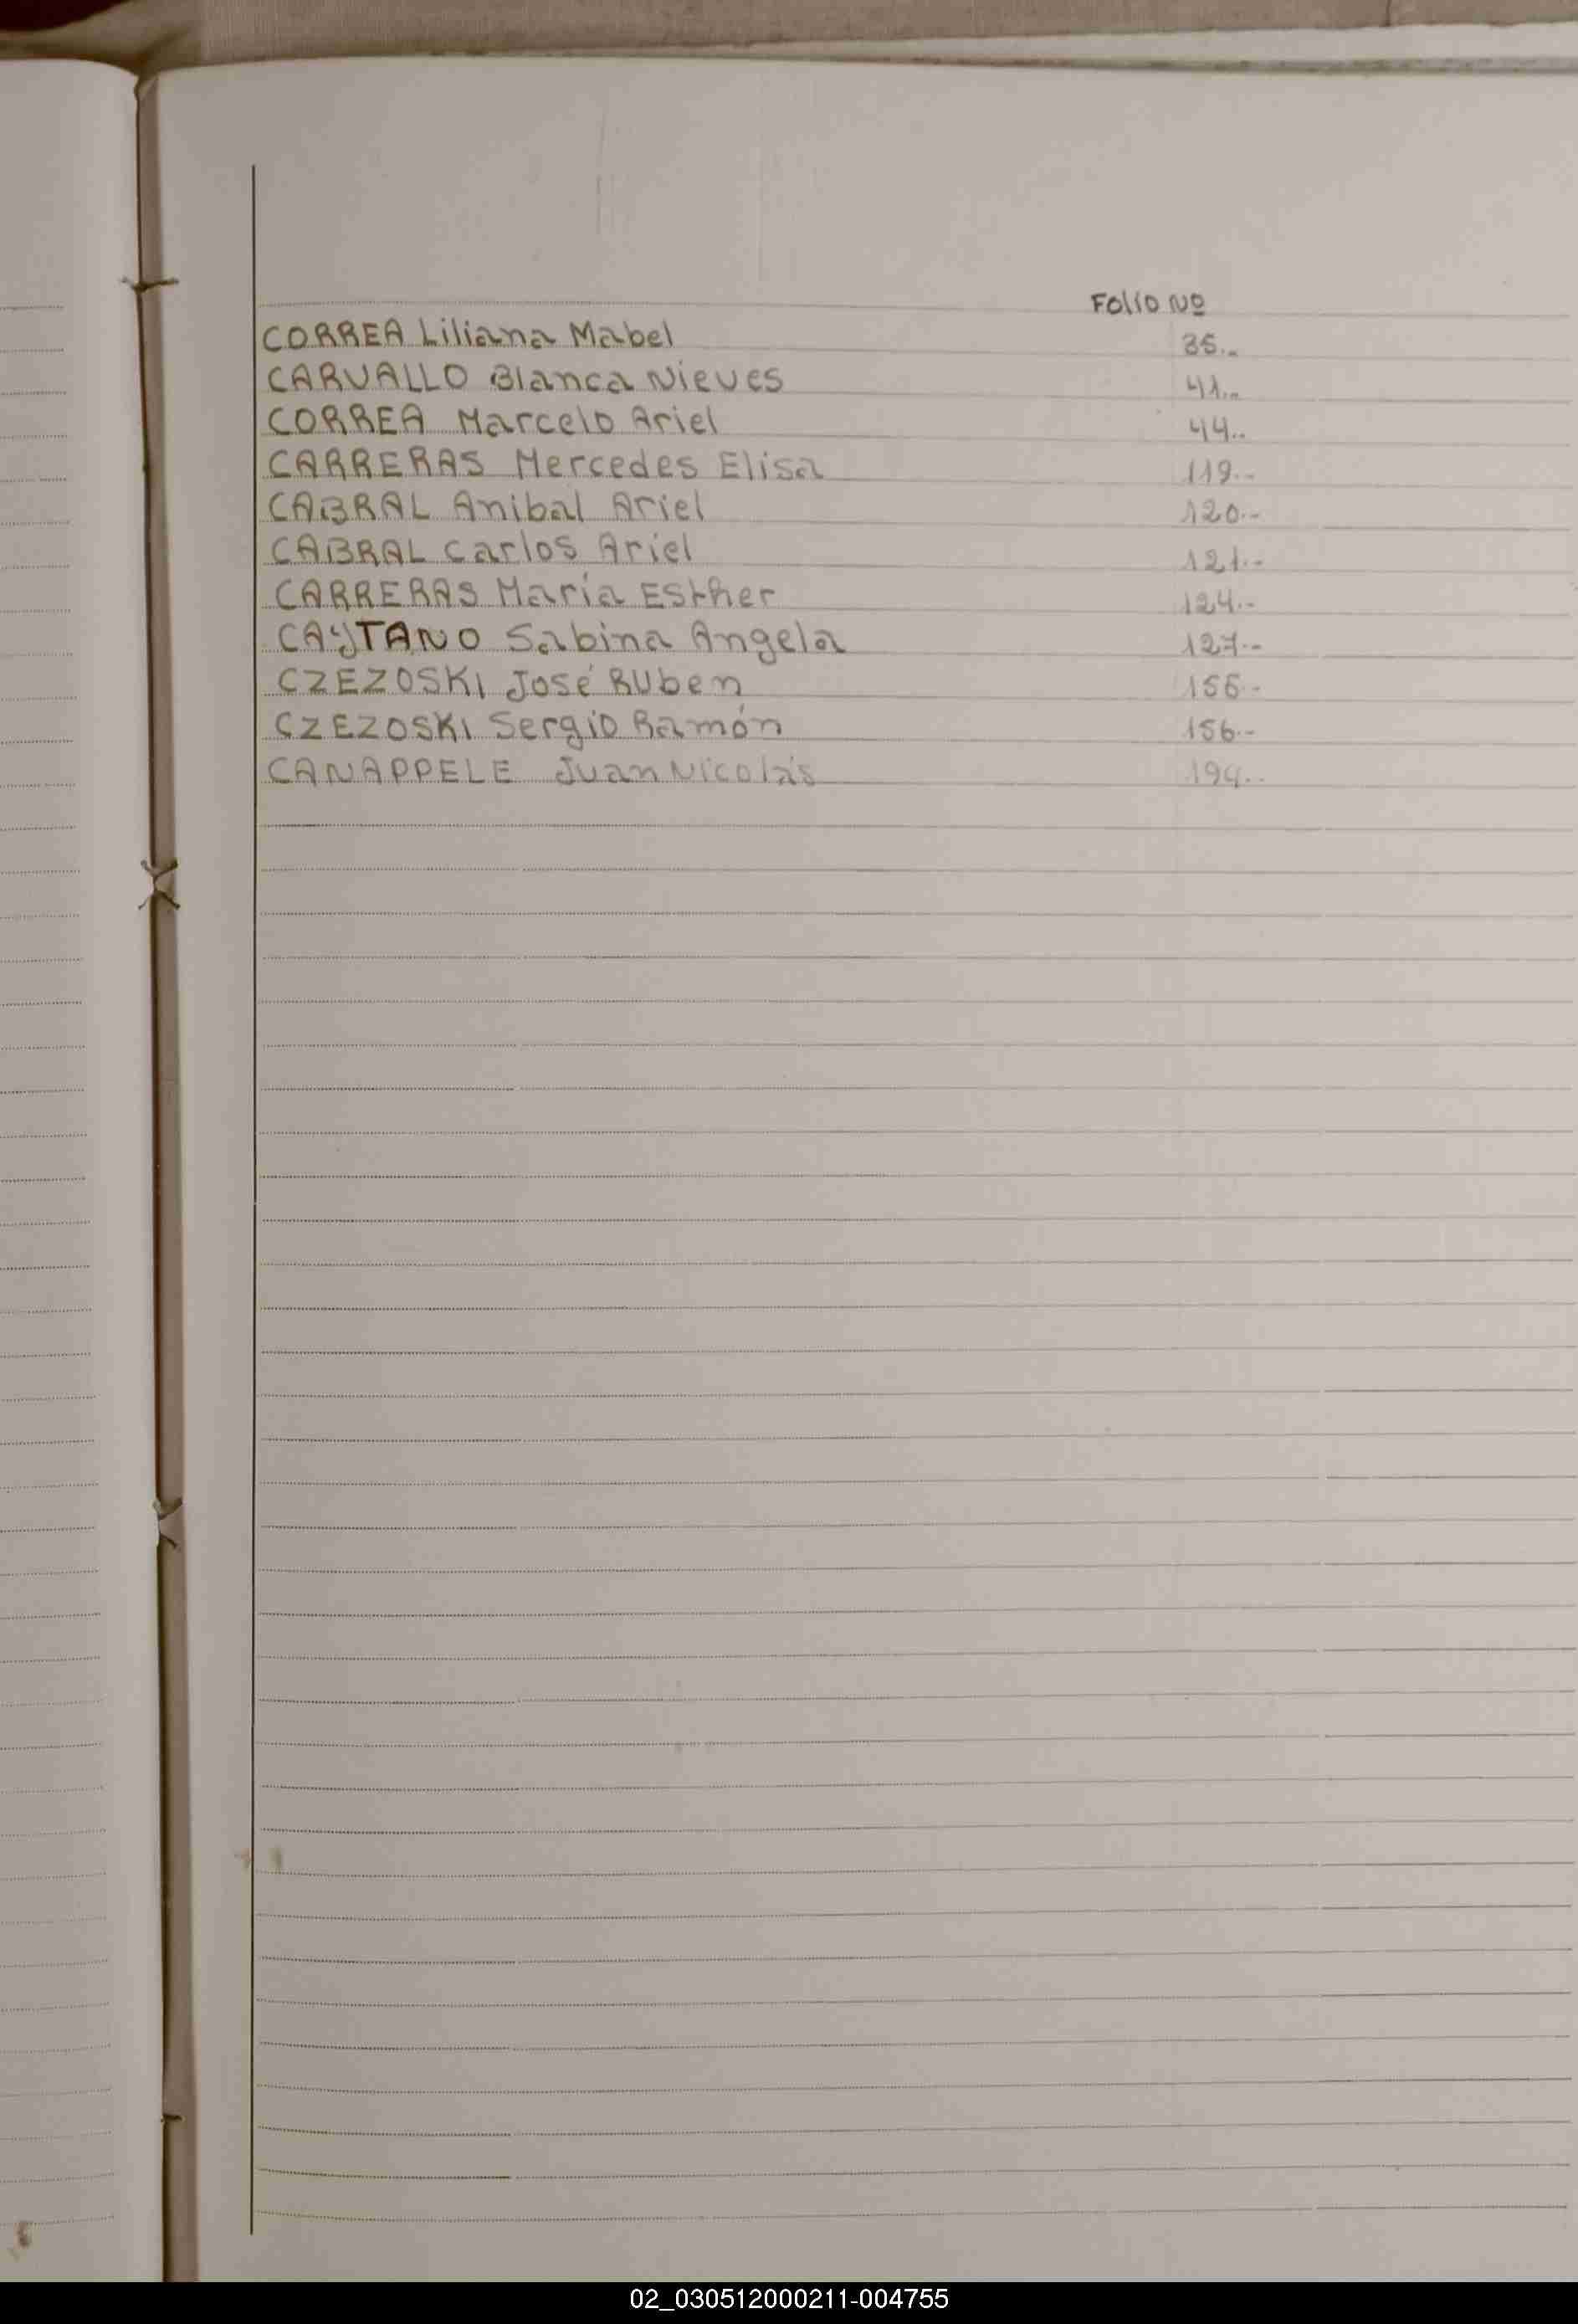 Folio Nº
CORREA Liliana Mabel 35..
CARVALLO Blanca Nieves 41..
CORREA Marcelo Ariel 44..
CARRERAS Mercedes Elisa 119.-
CABRAL Anibal Ariel 120.-
CABRAL Carlos Ariel 121.-
CARRERAS María Esther 124.-
CAYTANO Sabina Angela 127.-
CZEZOSKI José Ruben 155.-
CZEZOSKI Sergio Ramón 156.-
CANAPPELE Juan Nicolás
02_030512000211-004755